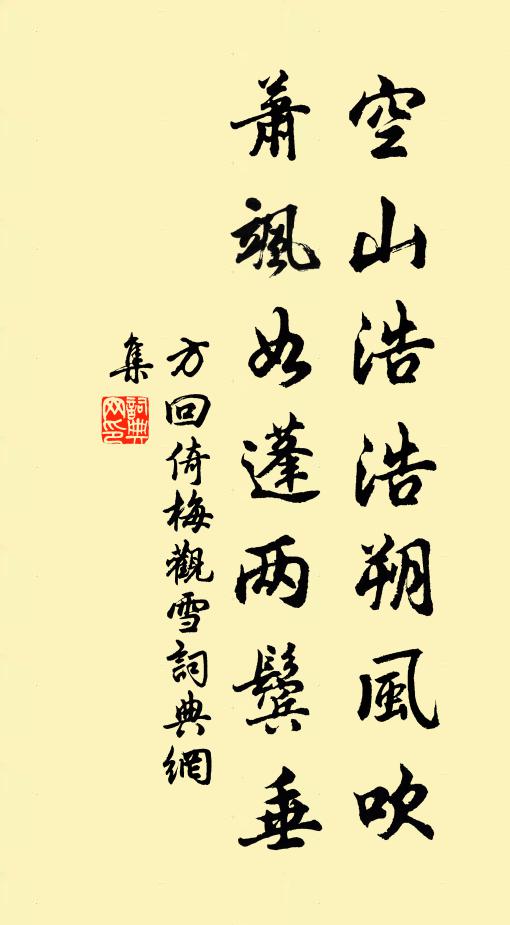 空山浩浩朔風吹
蕭颯如蓬两鬢垂
方回倚梅觀雪詞典網
集
詞典網印